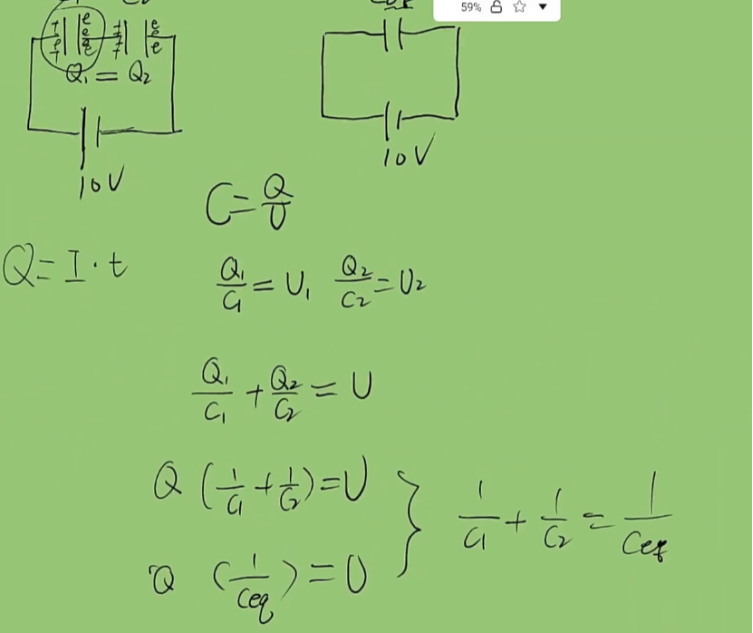 59%
Q₁ = Q₂
10V
10V
C = Q/U
Q = I · t
Q₁/C₁ = U₁  Q₂/C₂ = U₂
Q₁/C₁ + Q₂/C₂ = U
Q (1/C₁ + 1/C₂) = U
1/C₁ + 1/C₂ = 1/Ceq
Q (1/Ceq) = U